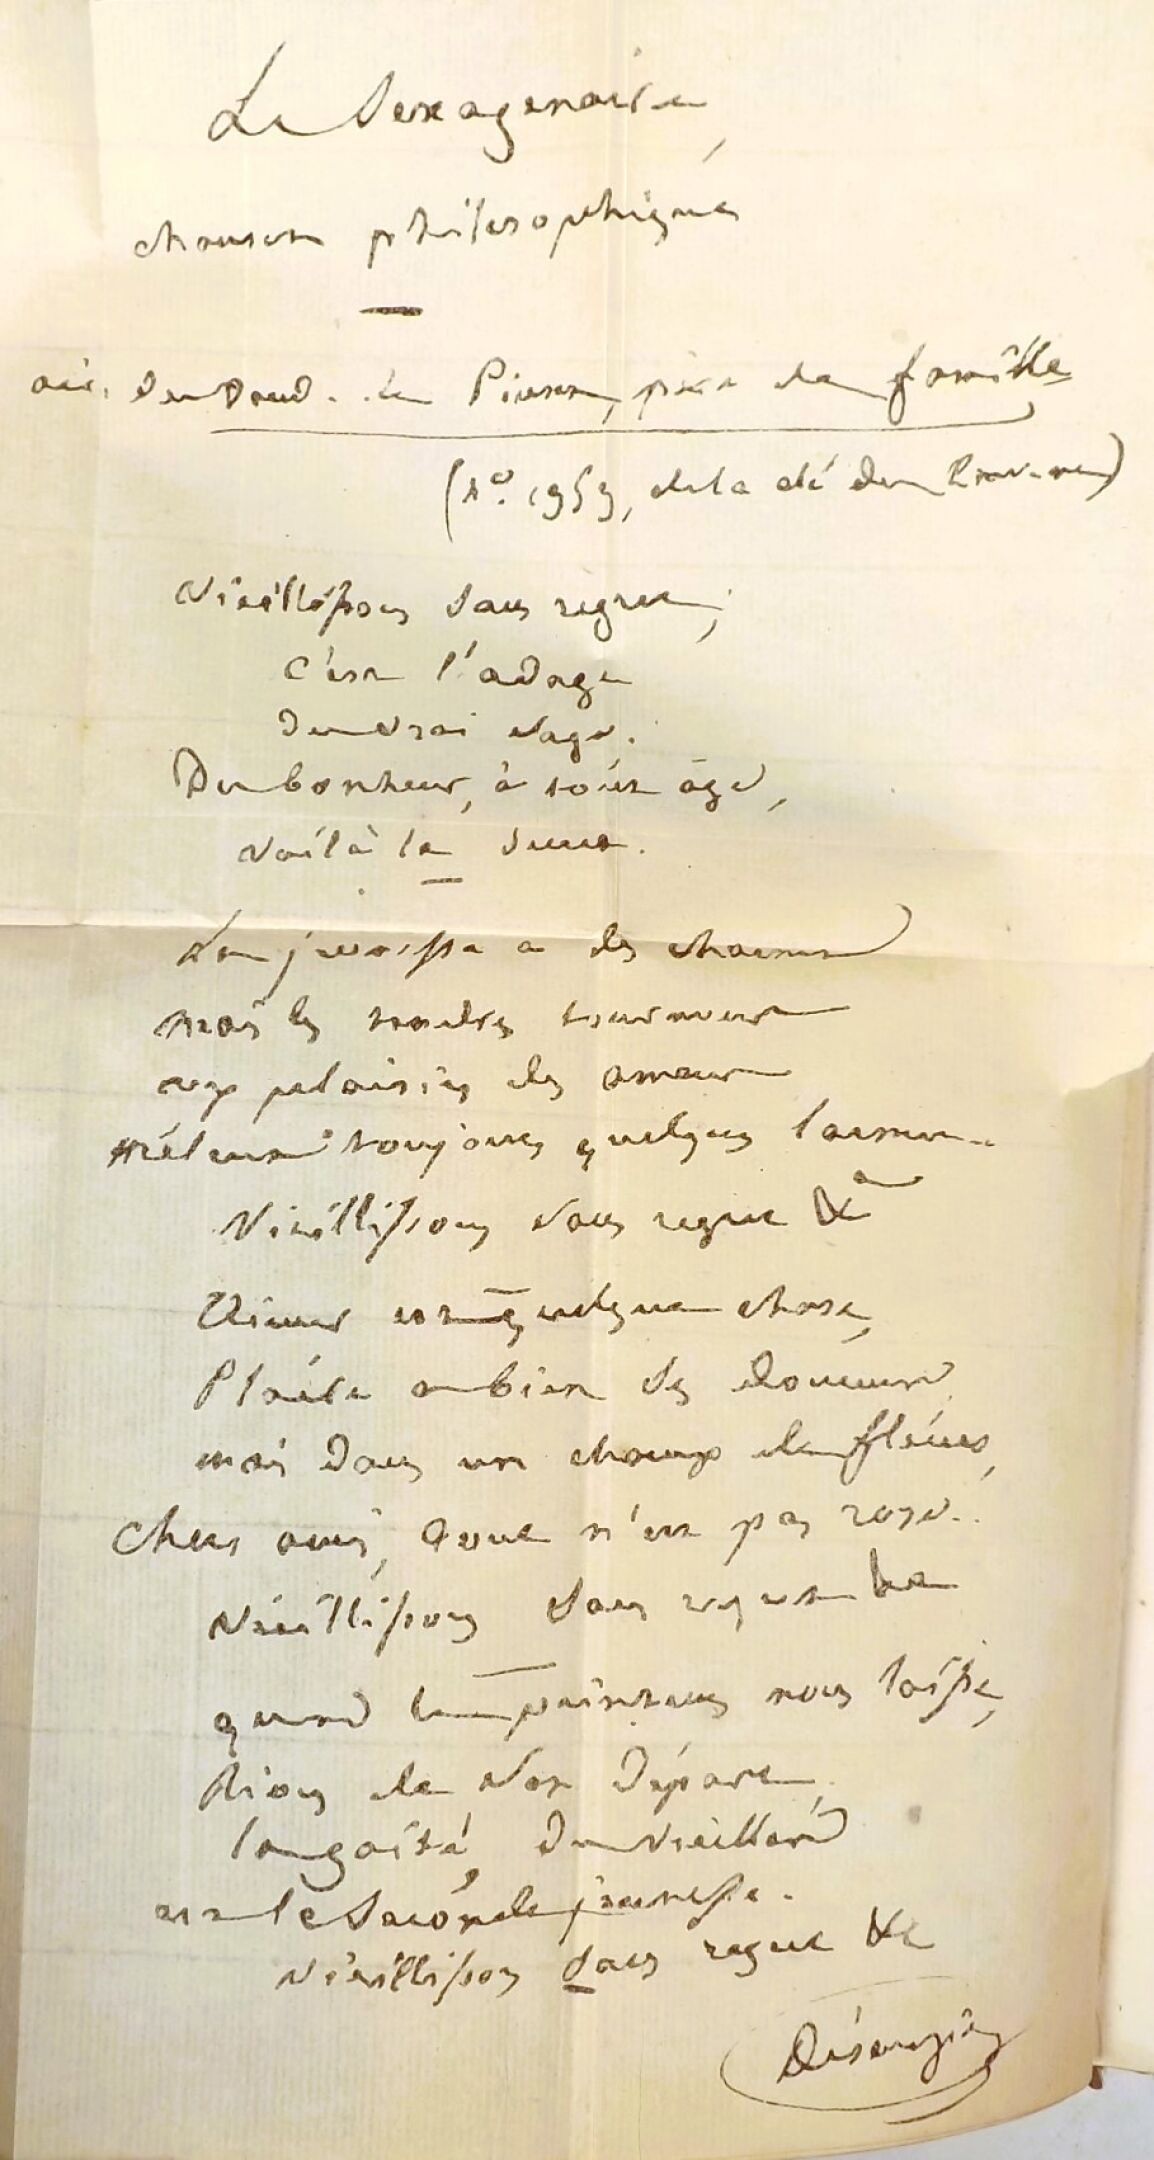 Le Sexagenaire,
chanson philosophique
air. du vaud. de Piron, père de famille
(N°. 1953, de la clé du Caveau)
Vieillissons sans regret;
C'est l'adage
Du vrai sage.
Du bonheur, à tout âge,
Voilà le secret.
La jeunesse a des charmes
mais les tendres tourmens
aux plaisirs des amans
mêlent toujours quelques larmes..
Vieillissons sans regret &a
Aimer est quelque chose,
Plaire a bien des douceurs,
mais dans un champ de fleurs,
Chers amis, tout n'est pas rose..
Vieillissons sans regret &a
quand le printems nous laisse,
Rions de son départ,
la gaité du vieillard
est la seconde jeunesse.
Vieillissons sans regret &c
Désaugiers